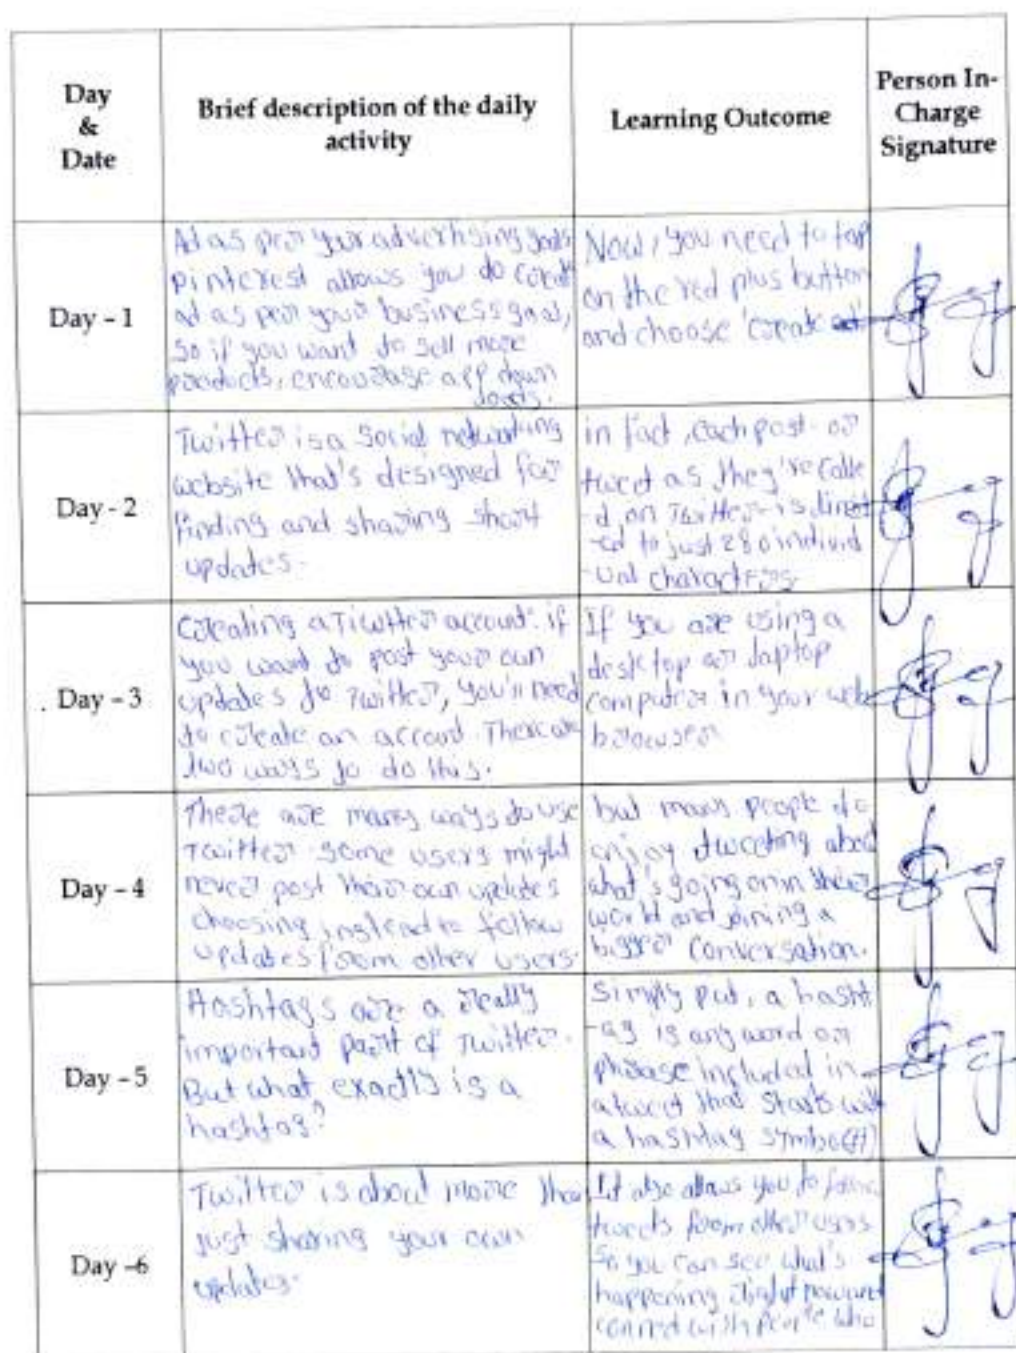 Day
&
Date
Brief description of the daily
activity
Learning Outcome
Person In-
Charge
Signature
Day – 1
Ad as per your advertising goals
Pinterest allows you do create
ad as per your business goal,
so if you want to sell more
products, encourage app down
loads.
Now, you need to tap
on the red plus button
and choose 'create ad'
Day - 2
Twitter is a social networking
website that's designed for
finding and sharing short
updates.
in fact, each post- or
tweet as they're calle
-d, on Twitter- is limit
-ed to just 280 individ
-ual characters
Day – 3
Creating a Twitter account: if
you want to post your own
updates to Twitter, you'll need
to create an account. There are
two ways to do this.
If you are using a
desktop or laptop
computer in your web
browser
Day – 4
There are many ways to use
Twitter some users might
never post their own updates
choosing instead to follow
updates from other users.
but many people do
enjoy tweeting about
what's going on in their
world and joining a
bigger conversation.
Day – 5
Hashtags are a really
important part of Twitter.
But what exactly is a
hashtag?
Simply put, a hasht
-ag is any word or
phrase included in
a tweet that starts with
a hashtag symbol(#)
Day –6
Twitter is about more than
just sharing your own
updates.
It also allows you to follow
tweets from other users
So you can see what's
happening right now and
connect with people who